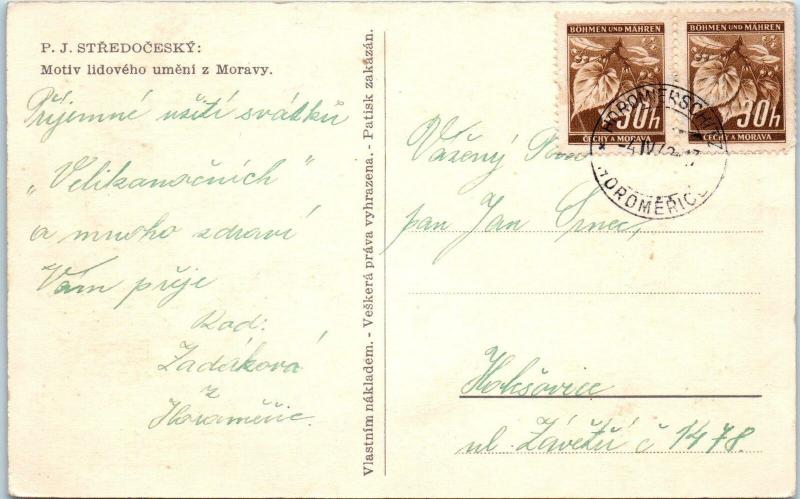 P. J. STŘEDOČESKÝ:
Motiv lidového umění z Moravy.
Příjemné užití svátků
„Velikanočních"
a mnoho zdraví
Vám přeje
Rod:
Zadáková
z
Horoměřic.
Vlastním nákladem. - Veškerá práva vyhrazena. - Patisk zakázán.
BÖHMEN UND MÄHREN
30h
ČECHY A MORAVA
BÖHMEN UND MÄHREN
30h
ČECHY A MORAVA
HOROMIERSCHITZ
-4.IV.42-17
HOROMĚŘICE
Vážený Pán
pan Jan Crnec,
Holešovice
ul. Závětří č 1478.